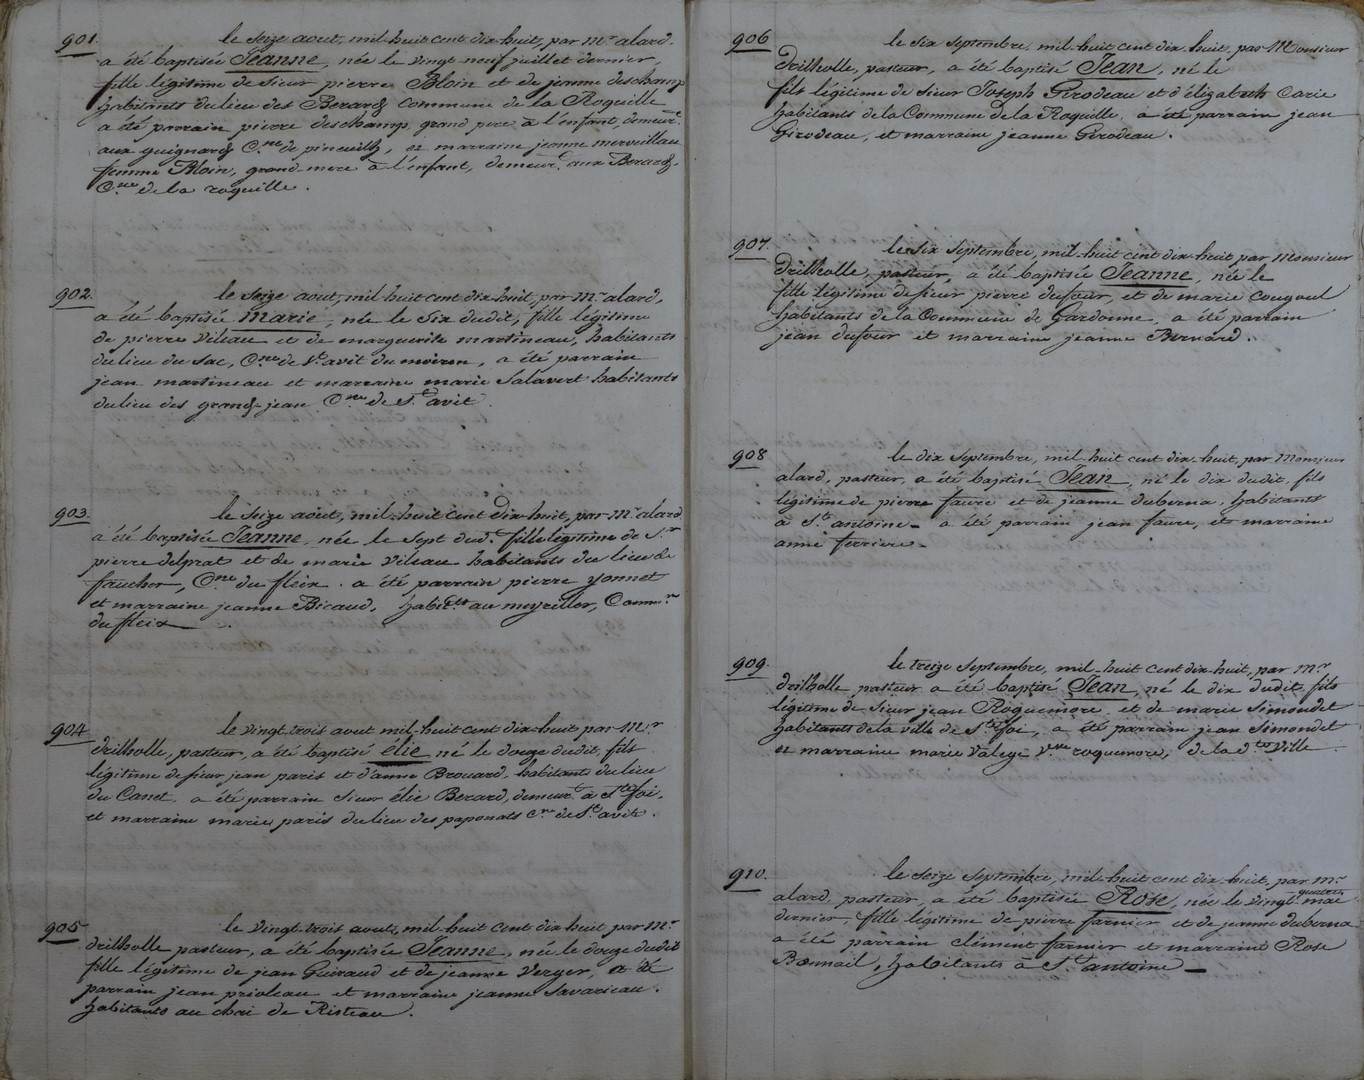 901. le Seize aout, mil-huit cent dix-huit, par Mr. alard.
a été baptisée Jeanne, née le vingt neuf juillet dernier,
fille légitime de Sieur pierre Bloin et de jeanne deschamp
habitants du lieu des Berards Commune de la Roquille
a été parrain pierre deschamp, grand pere à l'enfant, demeurt.
aux guignards Cne de pineuilh, et marraine jeanne merveillau
femme Bloin, grand-mere à l'enfant, demeurt. aux Berards,
Cne de la roquille.
902. le Seize aout, mil-huit cent dix-huit, par Mr. alard,
a été baptisée Marie, née le Six dudit, fille légitime
de pierre Vileau et de marguerite martineau, habitants
du lieu du Sac, Cne de St avit du moiron, a été parrain
jean martineau et marraine marie Salavert habitants
du lieu des grand-jean Cne de St. avit.
903. le Seize aout, mil-huit Cent Dix-huit, par Mr alard
a été baptisée Jeanne, née le Sept dudt. fille légitime de Sr
pierre delprat et de marie Vileau habitants du lieu de
faucher, Cne du fleix. a été parrain pierre yonnet
et marraine jeanne Bicaud, habitts au meyriller, Comne
du fleix
904. le vingt trois aout mil-huit cent dix-huit par Mr
drilholle, pasteur, a été baptisé élie né le douze dudit, fils
légitime de Sieur jean paris et d'anne Brouard, habitants du lieu
du Canet, a été parrain Sieur élie Berard, demeurt. à Ste foi,
et marraine marie paris du lieu des paponats Cne de St. avit.
905 le vingt-trois aout, mil-huit Cent dix huit par Mr
drilholle pasteur, a été baptisée Jeanne, née le douze dudit
fille légitime de jean Guiraud et de jeanne Verger, a été
parrain jean prioleau et marraine jeanne Savarieau.
habitants au choi de Risteau.
906 le Six Septembre, mil-huit cent dix huit, par Monsieur
Drilholle, pasteur, a été baptisé Jean, né le
fils légitime de Sieur Joseph Girodeau et d'élizabeth Carie
habitants de la Commune de la Roquille, a été parrain jean
Girodeau, et marraine jeanne Girodeau.
907. le Six Septembre, mil-huit cent dix-huit par Monsieur
Drilholle, pasteur, a été baptisée Jeanne, née le
fille légitime de Sieur pierre dufour, et de marie Cougoul
habitants de la Commune de Gardonne, a été parrain
jean dufour et marraine jeanne Bernard.
908 le dix Septembre, mil-huit cent dix-huit, par Monsieur
alard, pasteur, a été baptisé Jean, né le dix dudit, fils
légitime de pierre faure et de jeanne duberna, habitants
à St antoine - a été parrain jean faure, et marraine
anne ferriere -
909. le treize Septembre, mil-huit Cent dix-huit, par Mr
drilholle pasteur a été baptisé Jean, né le dix dudit, fils
légitime de Sieur jean Roquemore et de marie Simondet
habitants de la ville de Ste foi, a été parrain jean Simondet
et marraine marie Valege Vve roquemore, de la dte Ville
910. le Seize Septembre, mil-huit cent dix-huit, par Mr
alard, pasteur, a été baptisée Rose, née le vingt quatre mai
dernier, fille légitime de pierre farnier et de jeanne duberna
a été parrain clément farnier et marraine Rose
Bonnail, habitants à St. antoine -